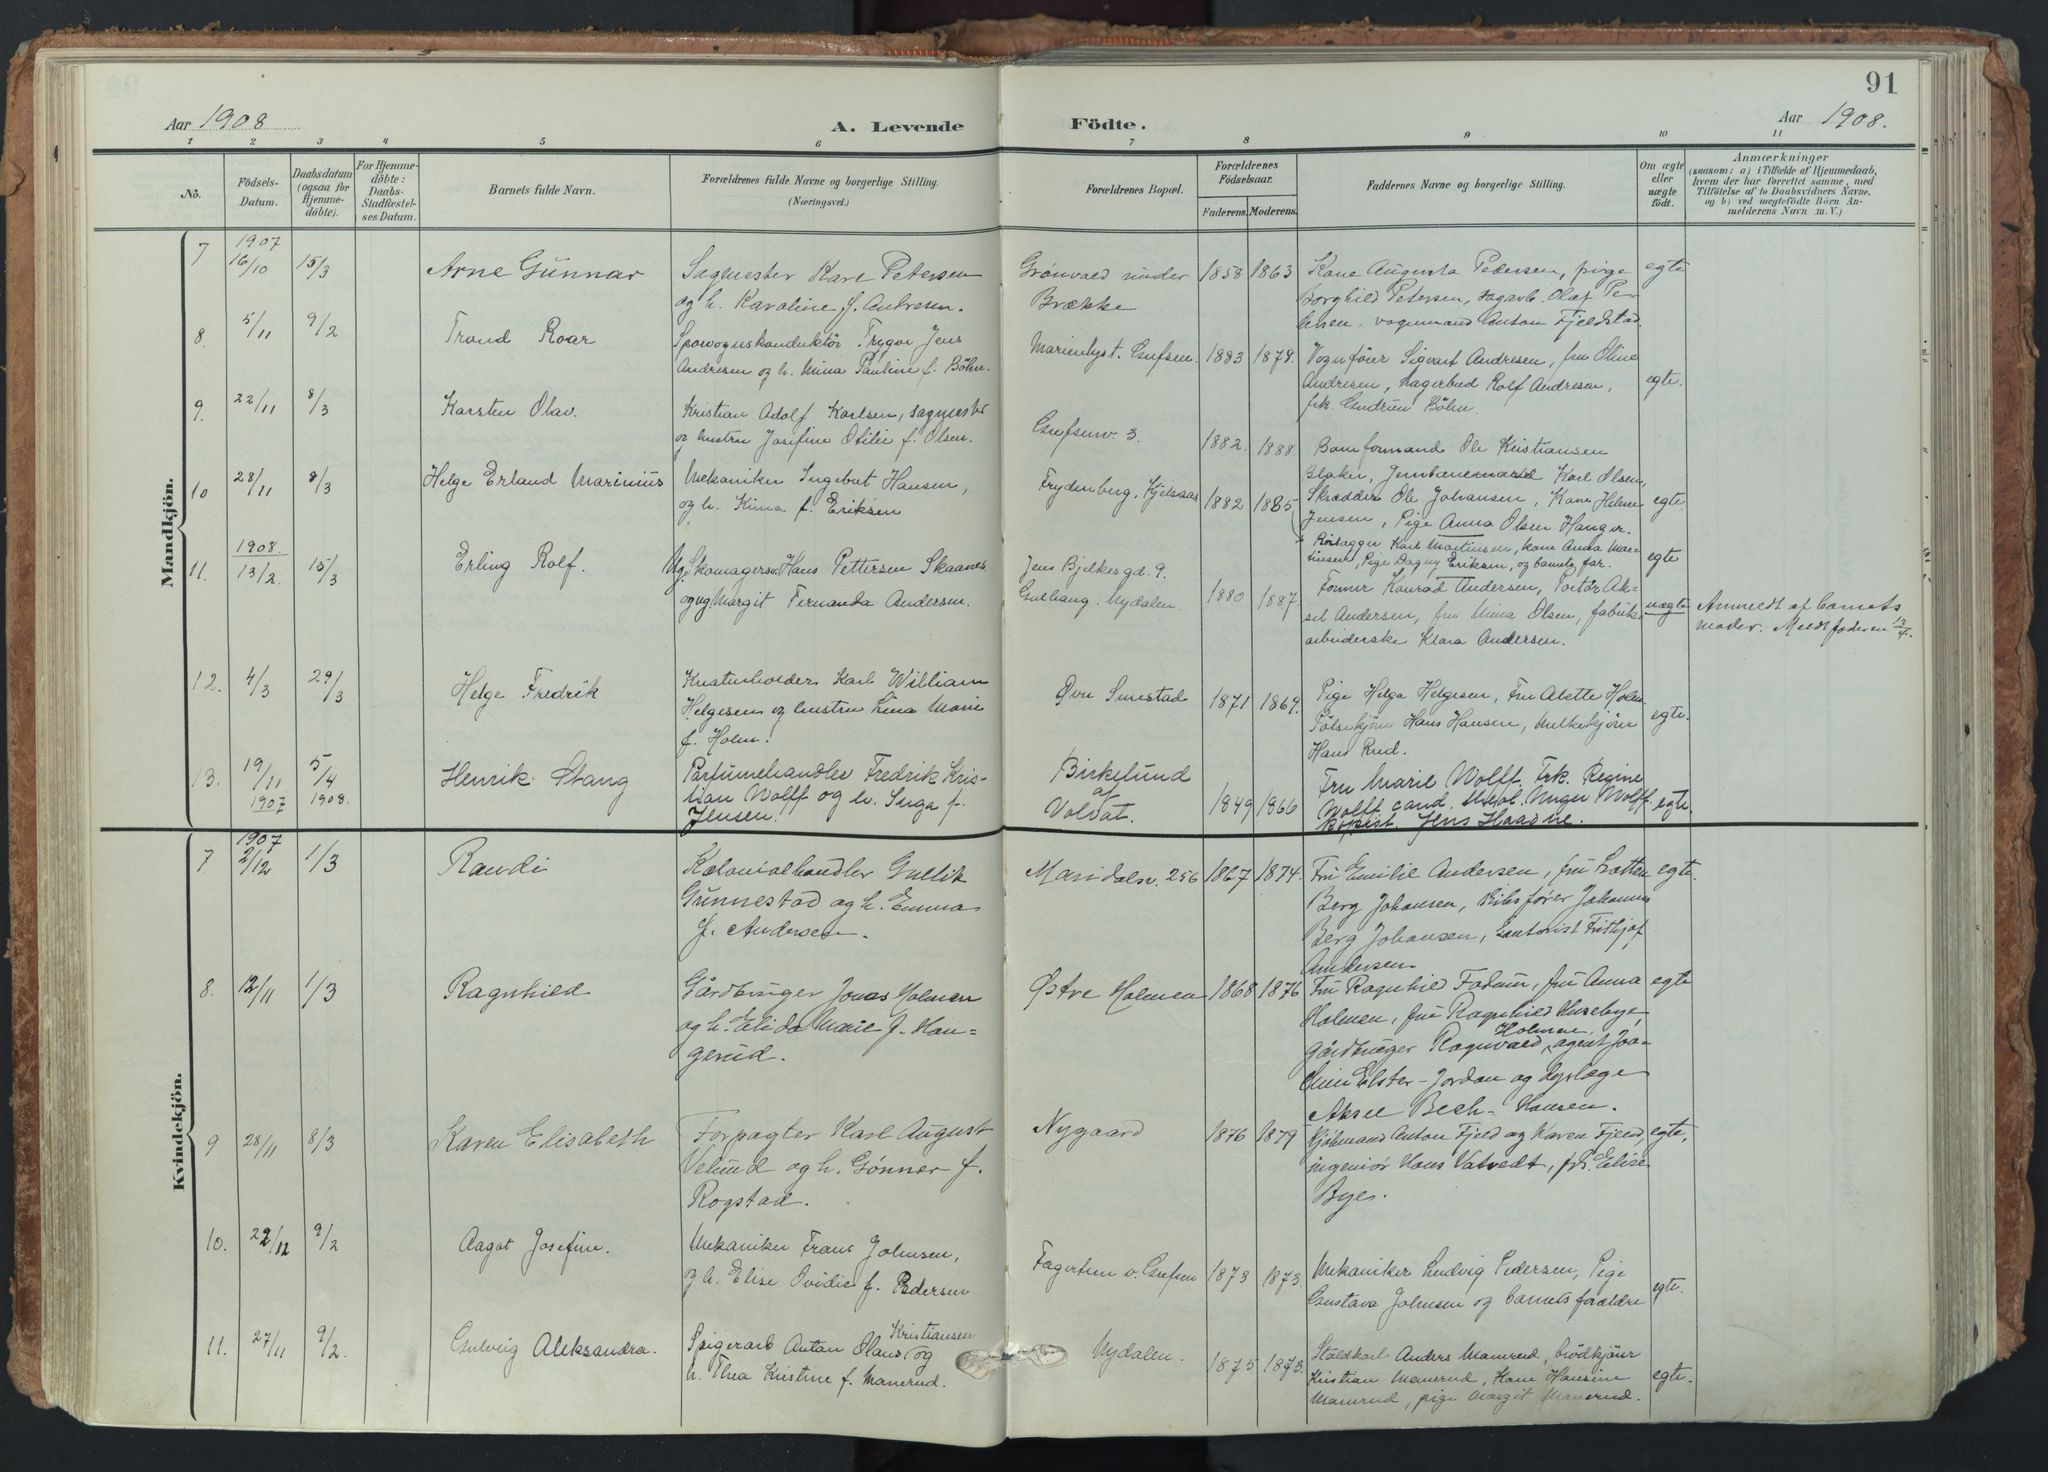 91
Aar 1908
A. Levende Födte.
Aar 1908.
1 2 3 4 5 6 7 8 9 10 11
No.
Födsels-
Datum.
Daabsdatum
(ogsaa for
Hjemme-
döbte).
For Hjemme-
döbte:
Daabs-
Stadfæstel-
ses Datum.
Barnets fulde Navn.
Forældrenes fulde Navne og borgerlige Stilling.
(Næringsvei.)
Forældrenes Bopæl.
Forældrenes
Födselsaar.
Faderens. Moderens.
Faddernes Navne og borgerlige Stilling.
Om ægte
eller
uægte
födt.
Anmærkninger
(saasom: a) i Tilfælde af Hjemmedaab,
hvem der har forrettet samme, med
Tilföielse af to Daabsvidners Navne.
og b) ved uægtefödte Börn An-
melderens Navn m. V.)
Mandkjön.
7 1907 16/10 15/3 Arne Gunnar
Sagmester Karl Petersen
og h. Karoline f. Andresen.
Grønvold under
Brække
1858 1863
Kone Augusta Pedersen, pige
Borghild Petersen, sagarb. Olaf Pe-
tersen, vognmand Anton Fjeldstad.
egte
8. 5/11 9/2 Trond Roar
Sporvognskonduktör Trygve Jens
Andresen og h. Mina Pauline f. Böhn.
Marienlyst. Grefsen.
1883 1878.
Vognfører Sigvart Andresen, fru Oline
Andresen, Lagerbud Rolf Andresen,
frk. Gudrun Böhn.
egte.
9. 22/11 8/3 Karsten Olav.
Kristian Adolf Karlsen, sagmester
og hustru Josefine Otilie f. Olsen.
Grefsenv. 3.
1882. 1888.
Baneformand Ole Kristiansen
Blaker, Jernbanemand Karl Olsen,
Skrædder Ole Johansen, Kone Helene
Jensen, Pige Anna Olsen Hanger.
egte.
10 28/11 8/3 Helge Erland Marinius
Mekaniker Ingebret Hansen,
og h. Kima f. Eriksen
Frydenberg. Kjelsaas
1882 1885
Rørlægger Karl Martinsen, kone Anna Mar-
tinsen, Pige Dagny Eriksen, og barnets far.
egte
11. 1908. 13/2. 15/3 Erling Rolf.
Ug. Skomagersv. Hans Pettersen Skaanes
og ug. Margit Fernanda Andersen.
Jens Bjelkes gd. 9.
Gulhaug. Nydalen.
1880 1887.
Former Konrad Andersen, Portør Ak-
sel Andersen, fru Mina Olsen, fabrik-
arbeiderske Klara Andersen.
uægte
Anmeldt af barnets
moder. Meldt faderen 13/4.
12. 4/3 29/3 Helge Fredrik
Karl William
Helgesen og hustru Lina Marie
f. Holm.
Øvre Smestad
1871 1869.
Pige Helga Helgesen, Fru Alette Holm.
Pølsekjører Hans Hansen, Melkekjører
Hans Rud.
egte.
13. 19/11 1907 5/4 1908. Henrik Stang
Parfumehandler Fredrik Kris-
tian Wolff og h. Inga f.
Jensen.
Birkelund
af
Voldat.
1849 1866
Fru Marie Wolff, Frk. Regine
Wolff cand. theol. Unger Wolff
kopist. Jens Haadne.
egte.
Kvindekjön.
7 1907 2/12 1/3 Randi
Kolonialhandler Gullik
Gunnestad og h. Emma
f. Andersen.
Maridalsv. 256
1867 1874.
Fru Emilie Andersen, fru Lotten
Berg Johansen, Johannes
Berg Johansen, Kontorist Fridtjof
Andersen.
egte.
8. 12/11 1/3 Ragnhild
Gårdbruger Jonas Holmen
og h. Elida Marie f. Hau-
gerud.
Østre Holmen
1868 1876
Fru Ragnhild Fadum, fru Anna
Holmen, fru Ragnhild Huseby,
gårdbruger Ragnvald Holmen, agent Joa-
chim Elster-Jordan og dyrlæge
Aksel Bech-Hansen.
egte
9 28/11 8/3 Karen Elisabeth
Forpagter Karl August
Velund og h. Gønner f.
Rogstad.
Nygaard
1876 1879
Kjøbmand Anton Fjeld og Karen Fjeld,
ingeniør Hans Vatvedt, frk. Elise
Byes.
egte,
10. 22/12 9/2 Aagot Josefine.
Mekaniker Frans Johnsen,
og h. Elise Ovidie f. Pedersen
Fagertun v. Grefsen
1873 1873.
Mekaniker Ludvig Pedersen, Pige
Gustava Johnsen og barnets forældre
egte.
11. 27/11 9/2. Gulvig Aleksandra.
Spigerarb Anton Olaus Kristiansen og
h. Thea Kristine f. Manerud.
Nydalen.
1875 1873.
Staldkarl Anders Manerud, brødkjører
Kristian Manerud, Kone Hansine
Manerud, pige Margit Manerud.
egte.